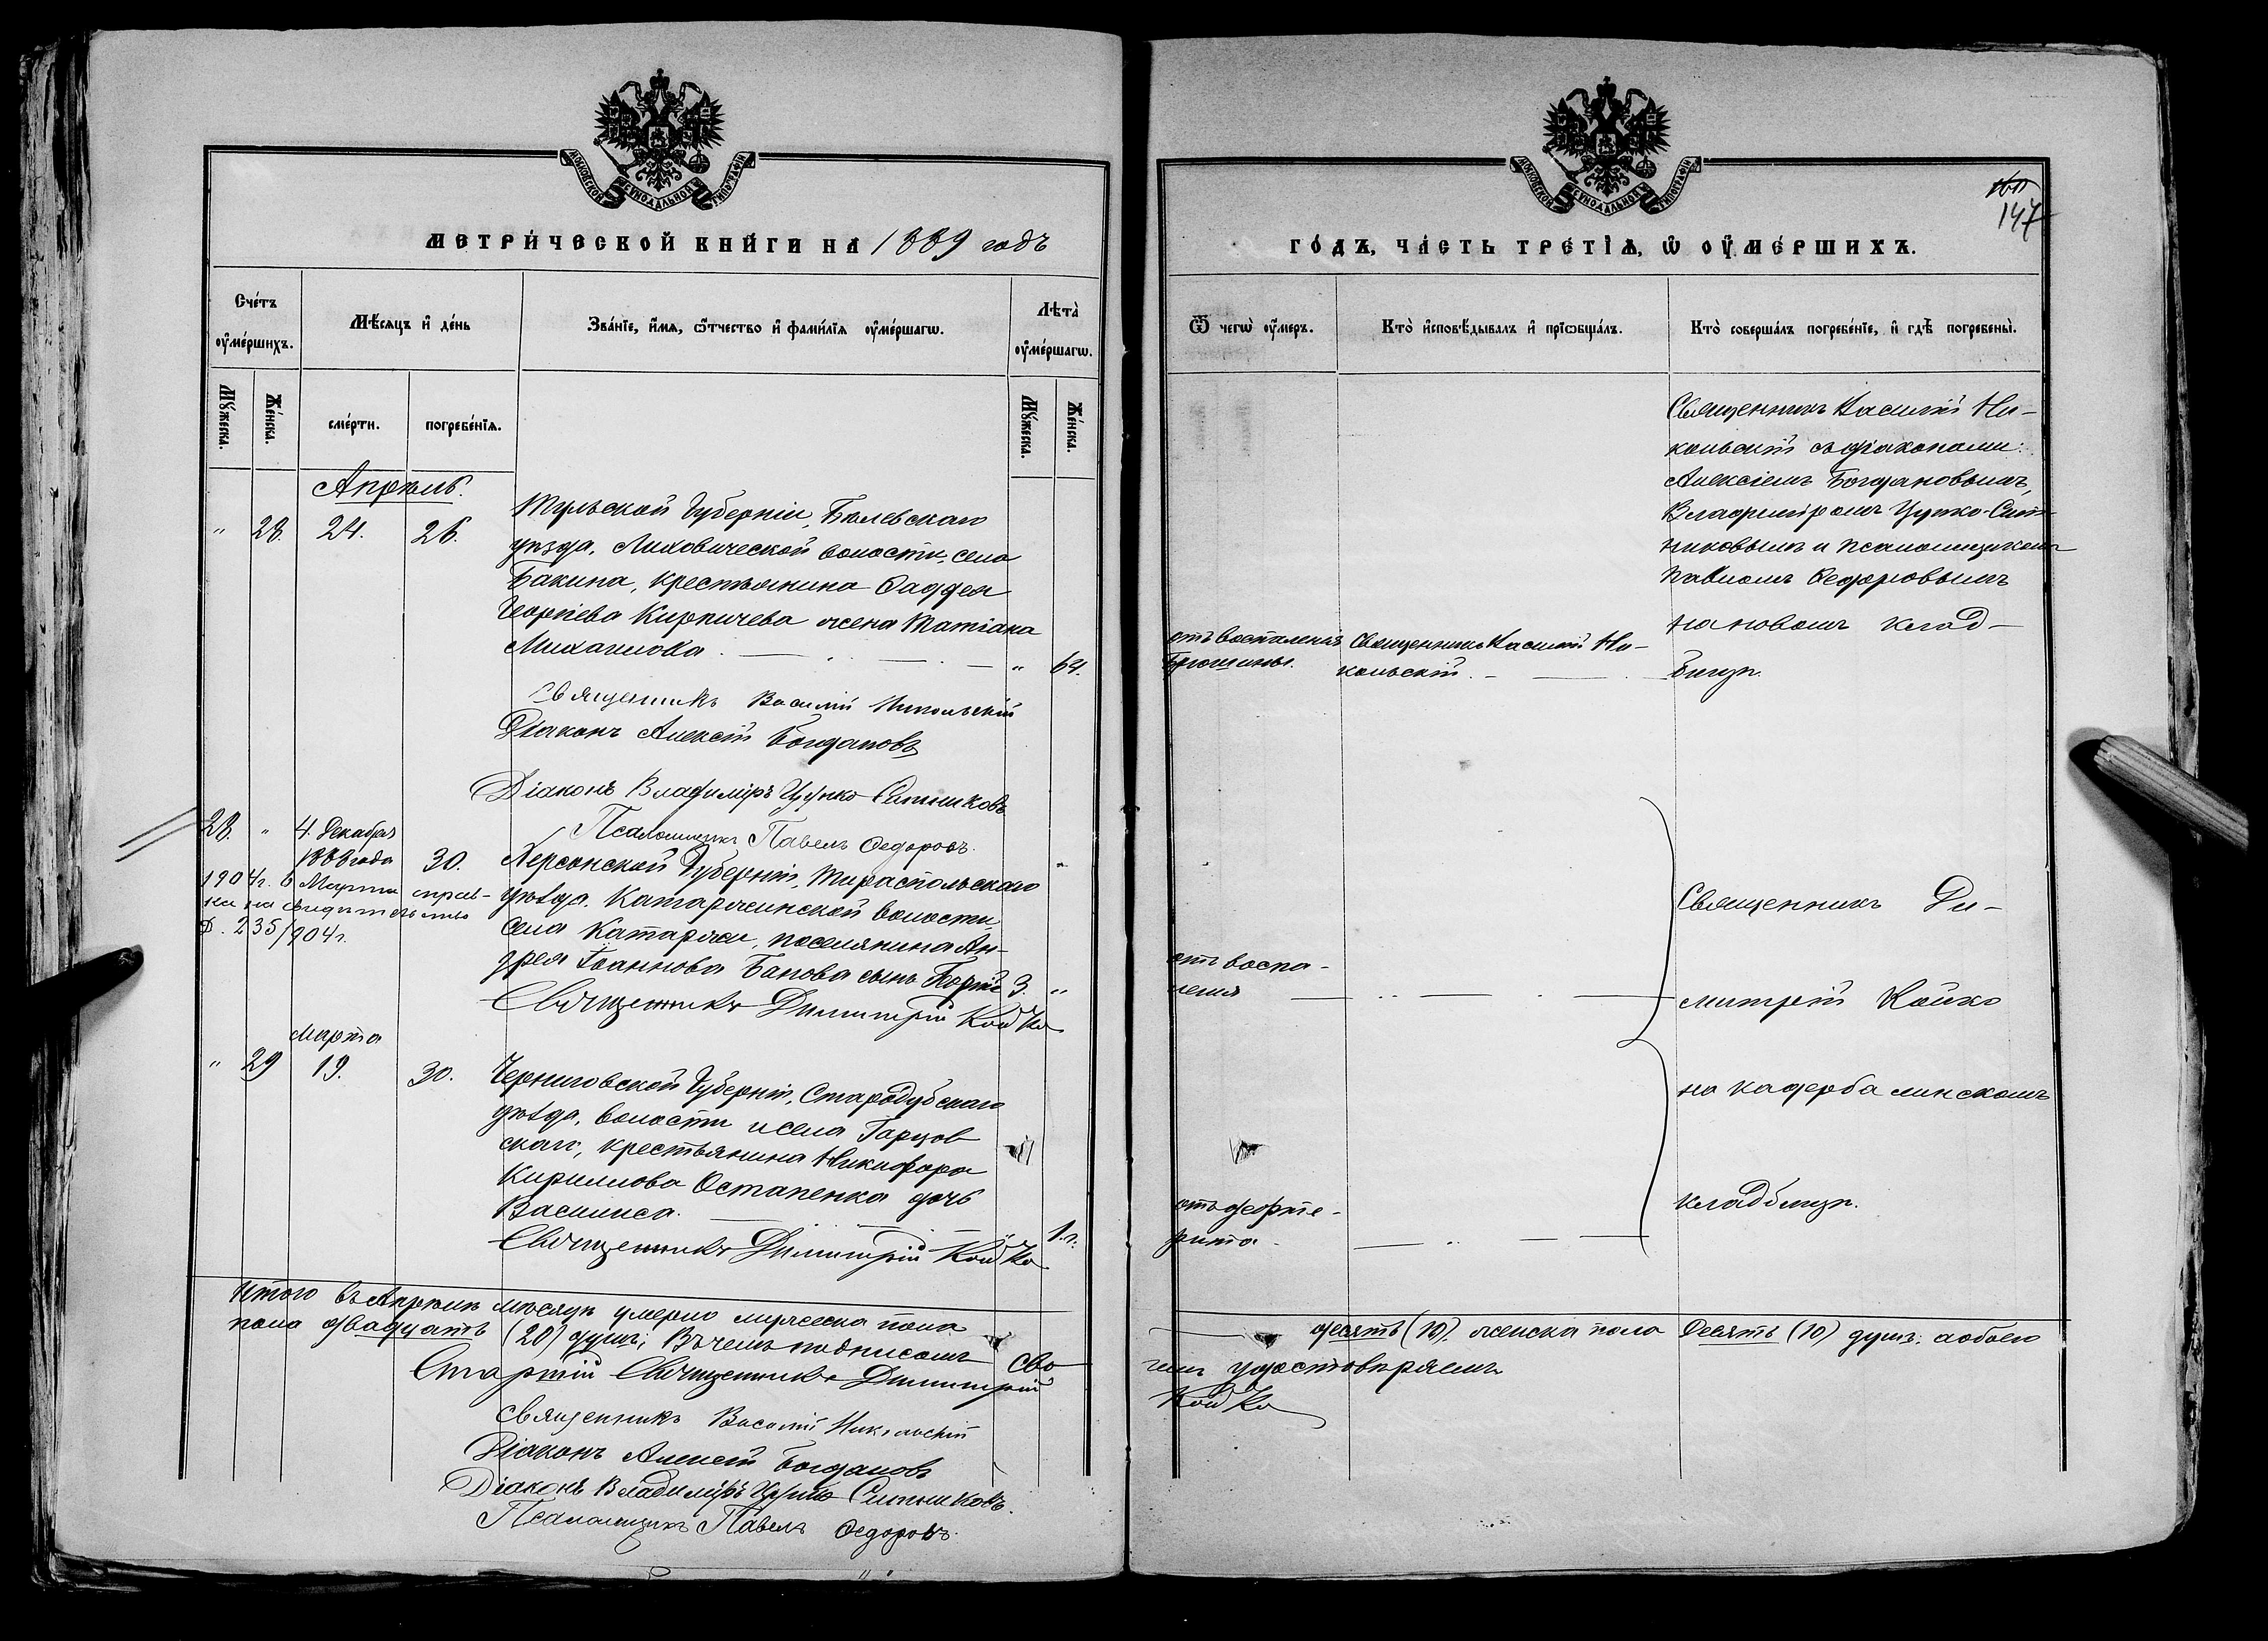 МОСКОВСКОЙ СѴНОДАЛЬНОЙ ТИПОГРАФІИ
МЕТРИ́ЧЕСКОЙ КНИ́ГИ НА 1889 годъ
Сче́тъ ᲂу҆ме́ршихъ.
Мѣ́сяцъ и҆ де́нь
Зва́нїе, и҆́мѧ, ѻ҆́тчество и҆ фами́лїѧ ᲂу҆ме́ршагѡ.
Лѣта̀ ᲂу҆ме́ршагѡ.
Мꙋ́жеска.
Же́нска.
сме́рти.
погребе́нїѧ.
Мꙋ́жеска.
Же́нска.
Апрѣль.
" 28. 24. 26.
Тульской Губерніи, Бѣлевскаго
уѣзда, Лиховической волости, села
Бакина, крестьянина Фаддея
Георгіева Кирпичева жена Татіана
Михаилова. " 64.
Священникъ Василій Никольскій
Діаконъ Алексій Богдановъ
Діаконъ Владиміръ Цупко-Ситниковъ
Псаломщикъ Павелъ Ѳедоровъ.
28. " 4. Декабря
1888 года 30.
1904 г. 6 Марта
Д. 235/904 г.
Херсонской Губерніи, Тираспольскаго
уѣзда. Катаржинской волости,
села Катаржи, поселянина Ан-
дрея Іоаннова Банова сынъ Георгій 3. "
Священникъ Димитрій Койко
Марта
" 29 19. 30.
Черниговской Губерніи, Стародубскаго
уѣзда, волости и села Гарцов
скаго, крестьянина Никифора
Кириллова Остапенка дочь
Василиса. " 1 г.
Священникъ Димитрій Койко
Итого въ Апрѣлѣ мѣсяцѣ умерло мужеска пола
пола двадцать (20) душъ; Въ чемъ подписомъ сво
Старшій Священникъ Димитрій
Священникъ Василій Никольскій
Діаконъ Алексій Богдановъ
Діаконъ Владиміръ Цупко Ситниковъ.
Псаломщикъ Павелъ Ѳедоровъ.
МОСКОВСКОЙ СѴНОДАЛЬНОЙ ТИПОГРАФІИ
147
ГО́ДЪ, ЧА́СТЬ ТРЕ́ТЇѦ, Ѡ҆ ОУ҆МЕ́РШИХЪ.
Ѿ чегѡ̀ ᲂу҆́меръ.
Кто̀ и҆сповѣ́дывалъ и҆ прїѡбща́лъ.
Кто̀ соверша́лъ погребе́нїе, и҆ гдѣ̀ погребены̀.
Священникъ Василій Ни-
кольскій съ діаконами:
Алексіемъ Богдановымъ,
Владиміромъ Цупко-Сит-
никовымъ и псаломщикомъ
Павломъ Ѳедоровымъ
на новомъ клад-
бищѣ.
отъ воспаленія
брюшины.
Священникъ Василій Ни-
кольскій.
отъ воспа-
ленія
Священникъ Ди-
митрій Койко
на
кладбищѣ.
отъ дифте-
рита
десять (10), женска пола Десять (10) душъ: а обоего
имъ удостовѣряемъ
Койко